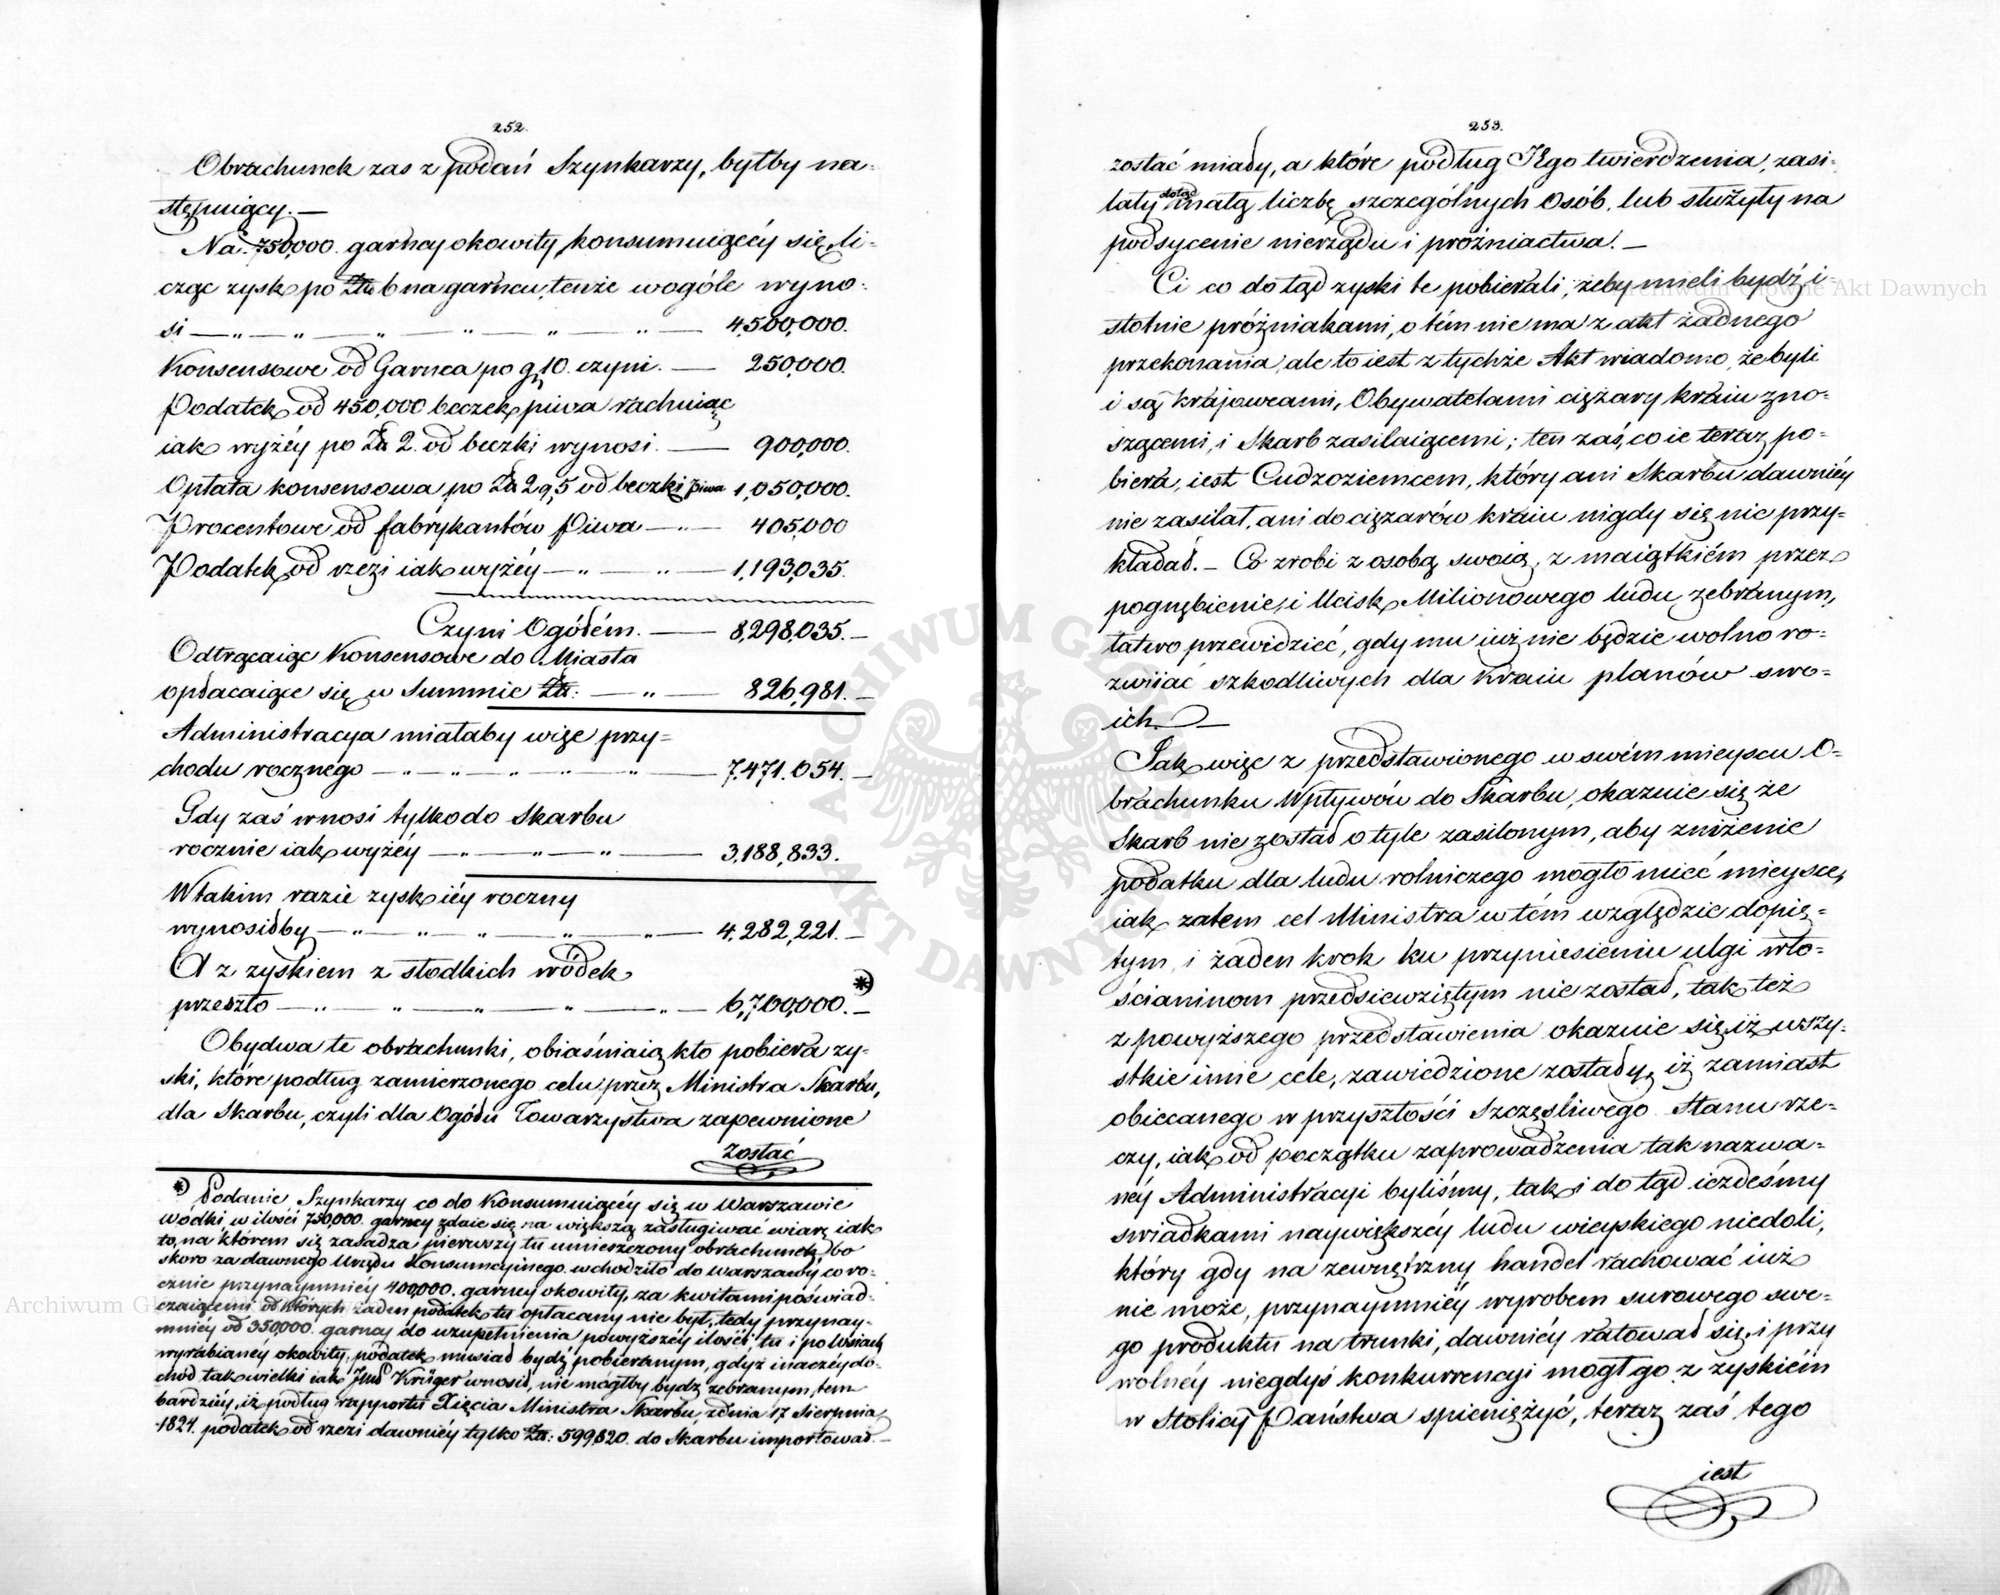 252.
Obrachunek zas z podań Szynkarzy, byłby na-
stępuiący. —
Na 750,000. garncy okowity konsumuiącéy się, li-
cząc zysk po Złt 6 na garncu, tenże wogóle wyno-
si — „ — „ — „ — „ — „ — „ — 4,500,000.
Konsensowe od Garnca po g. 10. czyni. — 250,000.
Podatek od 450,000 beczek piwa rachuiąc
iak wyżéy po Zł 2. od beczki wynosi. — 900,000.
Opłata konsensowa po Zł 2 g. 5 od beczki piwa 1,050,000.
Procentowe od fabrykantów Piwa — „ — 405,000
Podatek od rzezi iak wyżéy — „ — „ — 1,193,035.
Czyni Ogółem. — 8,298,035. —
Odtrącaiąc Konsensowe do Miasta
opłacaiące się w Summie Złt: — „ — 826,981. —
Administracya miałaby więc przy-
chodu rocznego — „ — „ — „ — „ — „ — 7,471.054. —
Gdy zaś wnosi tylko do Skarbu
rocznie iak wyżéy — „ — „ — „ — 3,188,833.
W takim razie zysk iéy roczny
wynosiłby — „ — „ — „ — „ — „ — 4,282,221. —
A z zyskiem z słodkich wódek
przeszło — „ — „ — „ — „ — „ — 6,700,000. — *)
Obydwa te obrachunki, obiaśniaią kto pobiera zy-
ski, które podług zamierzonego celu przez Ministra Skarbu,
dla Skarbu, czyli dla Ogółu Towarzystwa zapewnione
zostać
*) Podanie Szynkarzy co do Konsumuiącéy się w Warszawie
wódki, w ilości 750,000. garncy zdaie się na większą zasługiwać wiarę iak
to, na którem się zasadza pierwszy tu umieszczony obrachunek, bo
skoro za dawnego Urzędu Konsumcyinego wchodziło do Warszawy co ro-
cznie przynaymniéy 400,000. garncy okowity, za kwitami poświad-
czaiącemi od których żaden podatek tu opłacany nie był, tedy przynay-
mniéy od 350,000. garncy do uzupełnienia powyższéy ilości, tu i po Wsiach
wyrabianéy okowity, podatek musiał bydź pobieranym, gdyż inaczéy do-
chód tak wielki iak Krüger wnosił, nie mógłby bydz zebranym, tem
bardziéy, iż podług rapportu Xięcia Ministra Skarbu, zdnia 17 Sierpnia
1824. podatek od rzezi dawniéy tylko Złt: 599,820. do Skarbu importował. —
253.
zostać miały, a które podług JEgo twierdzenia, zasi-
lały dotąd małą liczbę szczególnych Osób, lub służyły na
podsycenie nierządu i próżniactwa. —
Ci co do tąd zyski te pobierali, żeby mieli bydź i-
stotnie próżniakami, o tém nie ma z akt żadnego
przekonania, ale to iest z tychże Akt wiadomo, że byli
i są Kraiowcami, Obywatelami ciężary kraiu zno-
szącemi, i Skarb zasilaiącemi; ten zaś, co ie teraz po-
biera, iest Cudzoziemcem, który ani Skarbu dawniéy
nie zasilał, ani do ciężarów kraiu nigdy się nie przy-
kładał. — Co zrobi z osobą swoią, z maiątkiém przez
pognębienie, i Ucisk Milionowego ludu zebranym,
łatwo przewidzieć, gdy mu iuż nie będzie wolno ro-
zwijać szkodliwych dla Kraiu planów swo-
ich. —
Jak więc z przedstawionego w swém mieyscu O-
brachunku Wpływów do Skarbu, okazuie się że
Skarb nie został o tyle zasilonym, aby zniżenie
podatku dla ludu rolniczego mogło mieć mieysce,
iak zatem cel Ministra w tém względzie dopię-
tym, i żaden krok ku przyniesieniu ulgi wło-
ścianinom przedsiewziętym nie został, tak też
z powyższego przedstawienia okazuie się, iż wszy-
stkie inne cele, zawiedzione zostały, iż zamiast
obiecanego w przyszłości Szczęśliwego Stanu rze-
czy, iak od początku zaprowadzenia tak nazwa-
néy Administracyi byliśmy, tak i do tąd iezdeśmy
swiadkami naywiększéy ludu wieyskiego niedoli,
który gdy na zewnętrzny handel rachować iuż
nie może, przynaymniéy wyrobem surowego swe-
go produktu na trunki, dawniéy ratował się, i przy
wolnéy niegdyś konkurrencyi mógł go z zyskiém
w Stolicy Państwa spieniężyć, teraz zaś tego
iest
Archiwum Główne Akt Dawnych